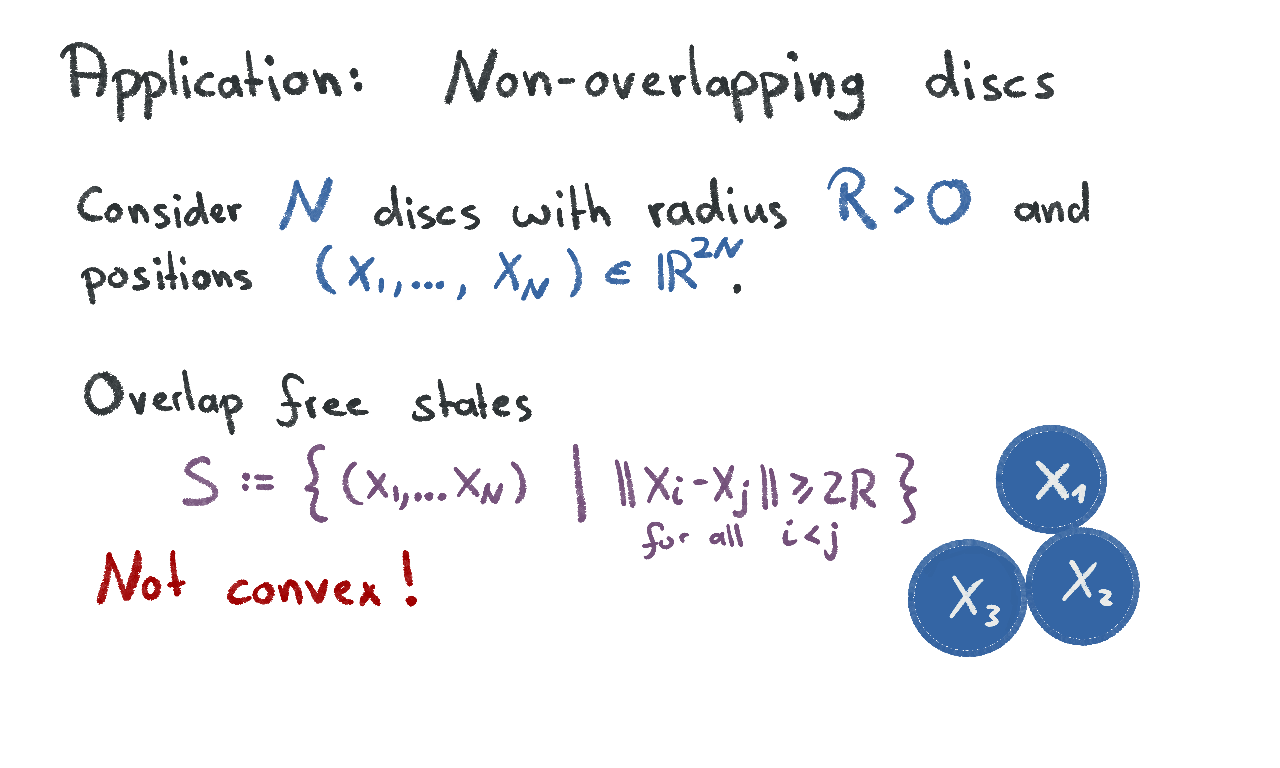 Application: Non-overlapping discs
Consider N discs with radius R > 0 and
positions (X₁,..., X_N) ∈ ℝ²ᴺ.
Overlap free states
S := { (X₁,... X_N) | ‖X_i - X_j‖ ⩾ 2R }
for all i < j
Not convex!
X₁
X₂
X₃